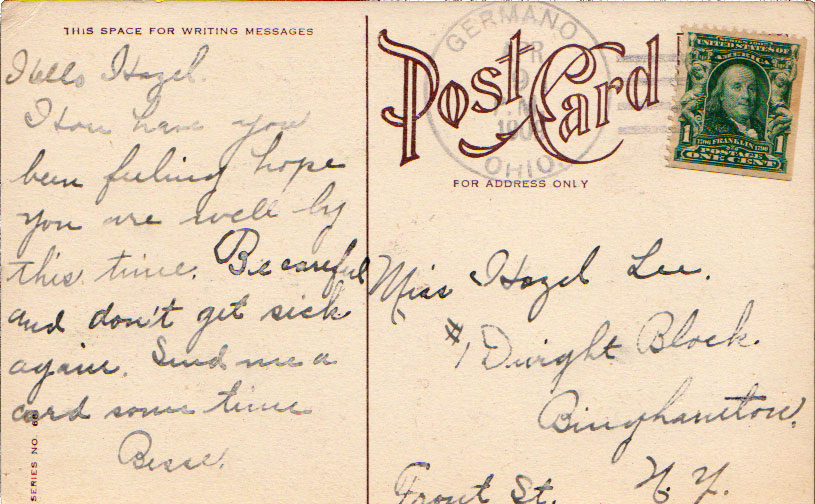 THIS SPACE FOR WRITING MESSAGES
Hello Hazel.
How have you
been feeling hope
you are well by
this time. Be careful
and don't get sick
again. Send me a
card some time
Besse.
SERIES NO.
GERMANO
APR
9
OHIO
Post Card
FOR ADDRESS ONLY
UNITED STATES OF
AMERICA
1 1
1706 FRANKLIN 1790
POSTAGE
ONE CENT
Miss Hazel Lee.
#1 Dwight Block.
Binghamton,
Front St. N.Y.